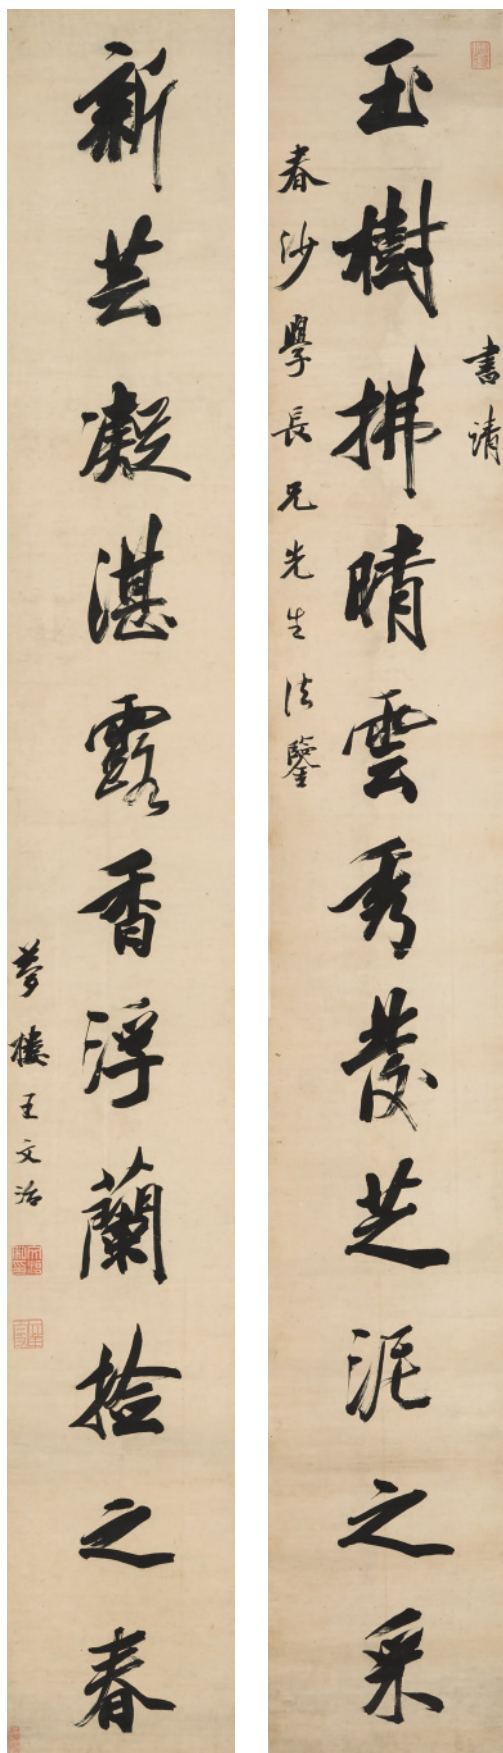 書請
玉樹拂晴雲秀發芝泥之采
春沙學長兄先生法鑒
新芸凝湛露香浮蘭捡之春
夢樓王文治